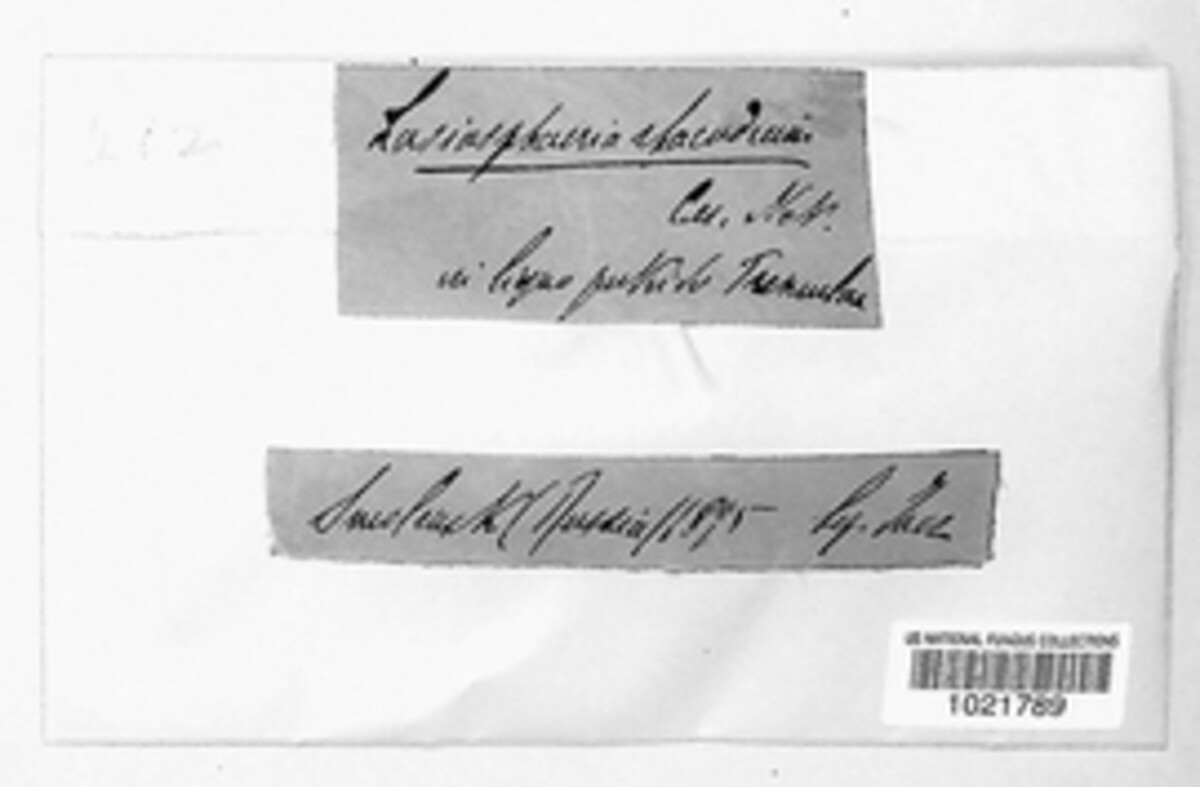 212
Lasiosphaeria rhacodium
Ces. Not.
in ligno putrido Tremulae
Smolensk (Russia) 1895 lg. Jacz
US NATIONAL FUNGUS COLLECTIONS
1021789